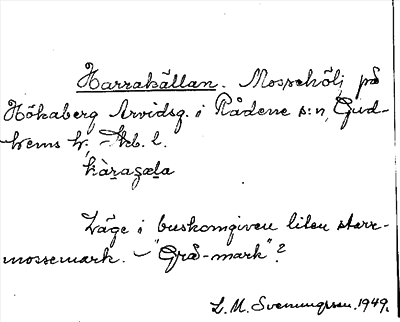 Harrakällan. Mossehölj på
Hökaberg Arvidsg. i Rådene s:n, Gud-
hems h., - Skb. l.
hàraʒæla
Läge i buskomgiven liten starr-
mossemark. - "Grå-mark"?
L. M. Svenungsson. 1949.